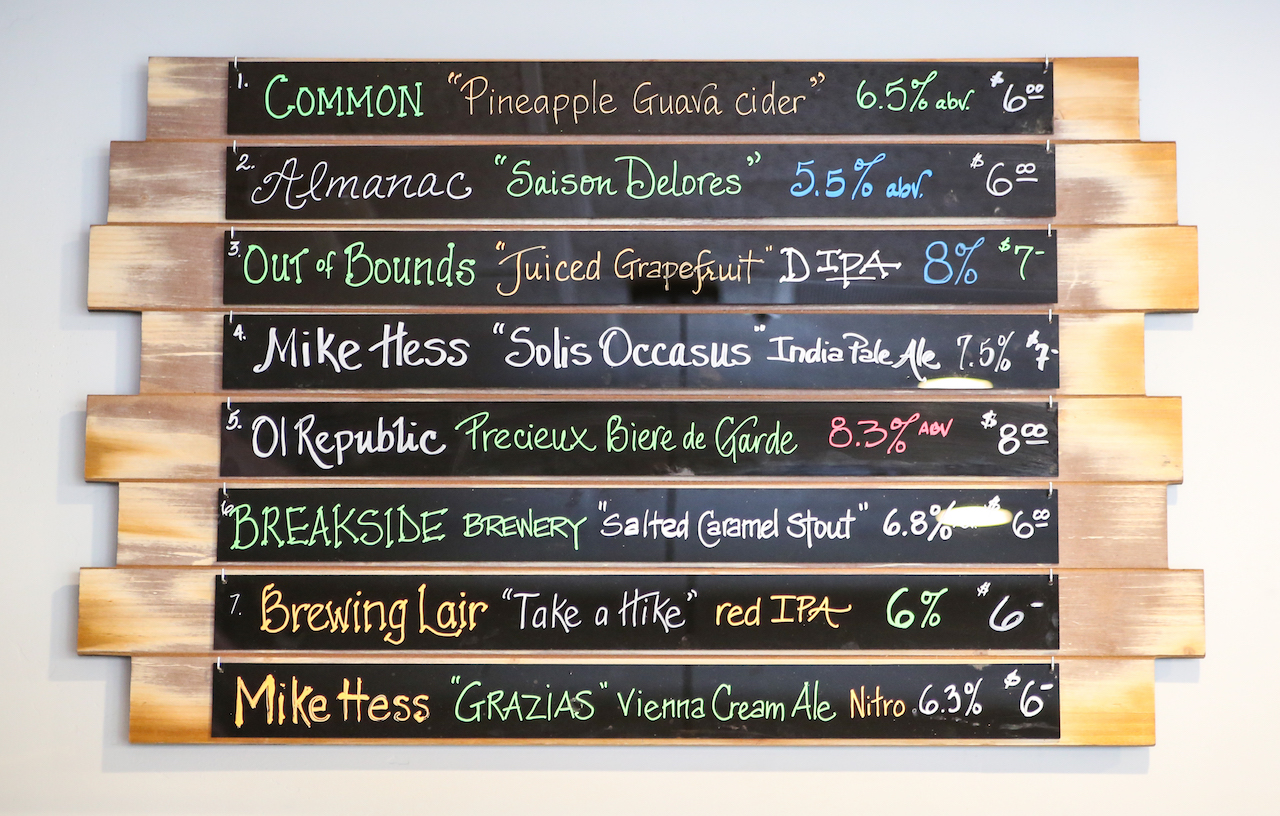 1. COMMON "Pineapple Guava cider" 6.5% abv. $6.00
2. Almanac "Saison Delores" 5.5% abv. $6.00
3. Out of Bounds "Juiced Grapefruit" D IPA 8% $7-
4. Mike Hess "Solis Occasus" India Pale Ale 7.5% $7-
5. Ol Republic Precieux Biere de Garde 8.3% ABV $8.00
6. BREAKSIDE BREWERY "Salted Caramel Stout" 6.8% $6.00
7. Brewing Lair "Take a Hike" red IPA 6% $6-
Mike Hess "GRAZIAS" Vienna Cream Ale Nitro 6.3% $6-